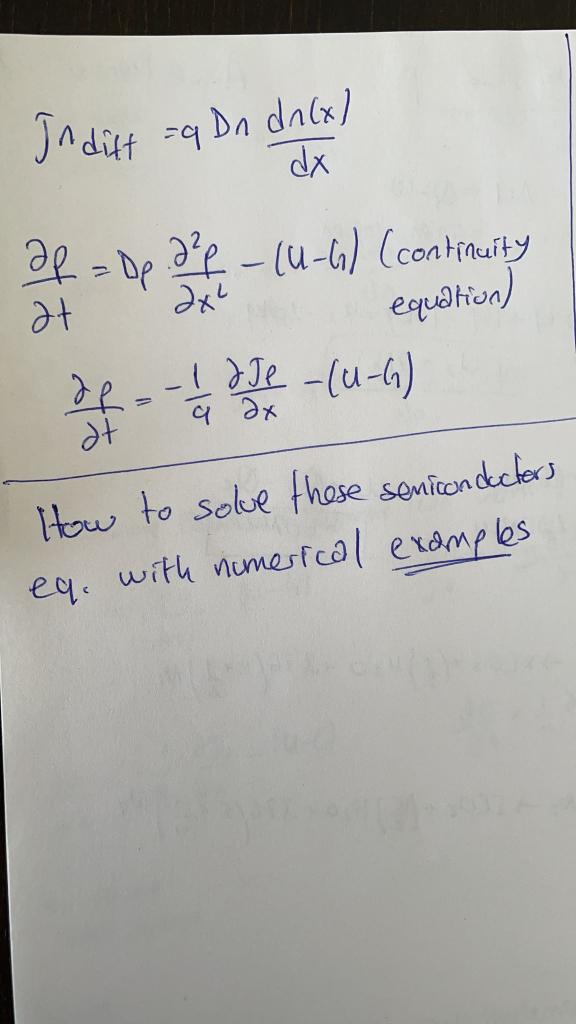 Jn diff = q Dn dn(x)/dx
∂p/∂t = Dp ∂²p/∂x² - (U-G) (continuity
equation)
∂p/∂t = -1/q ∂Jp/∂x - (U-G)
How to solve these semiconductors
eq. with numerical examples